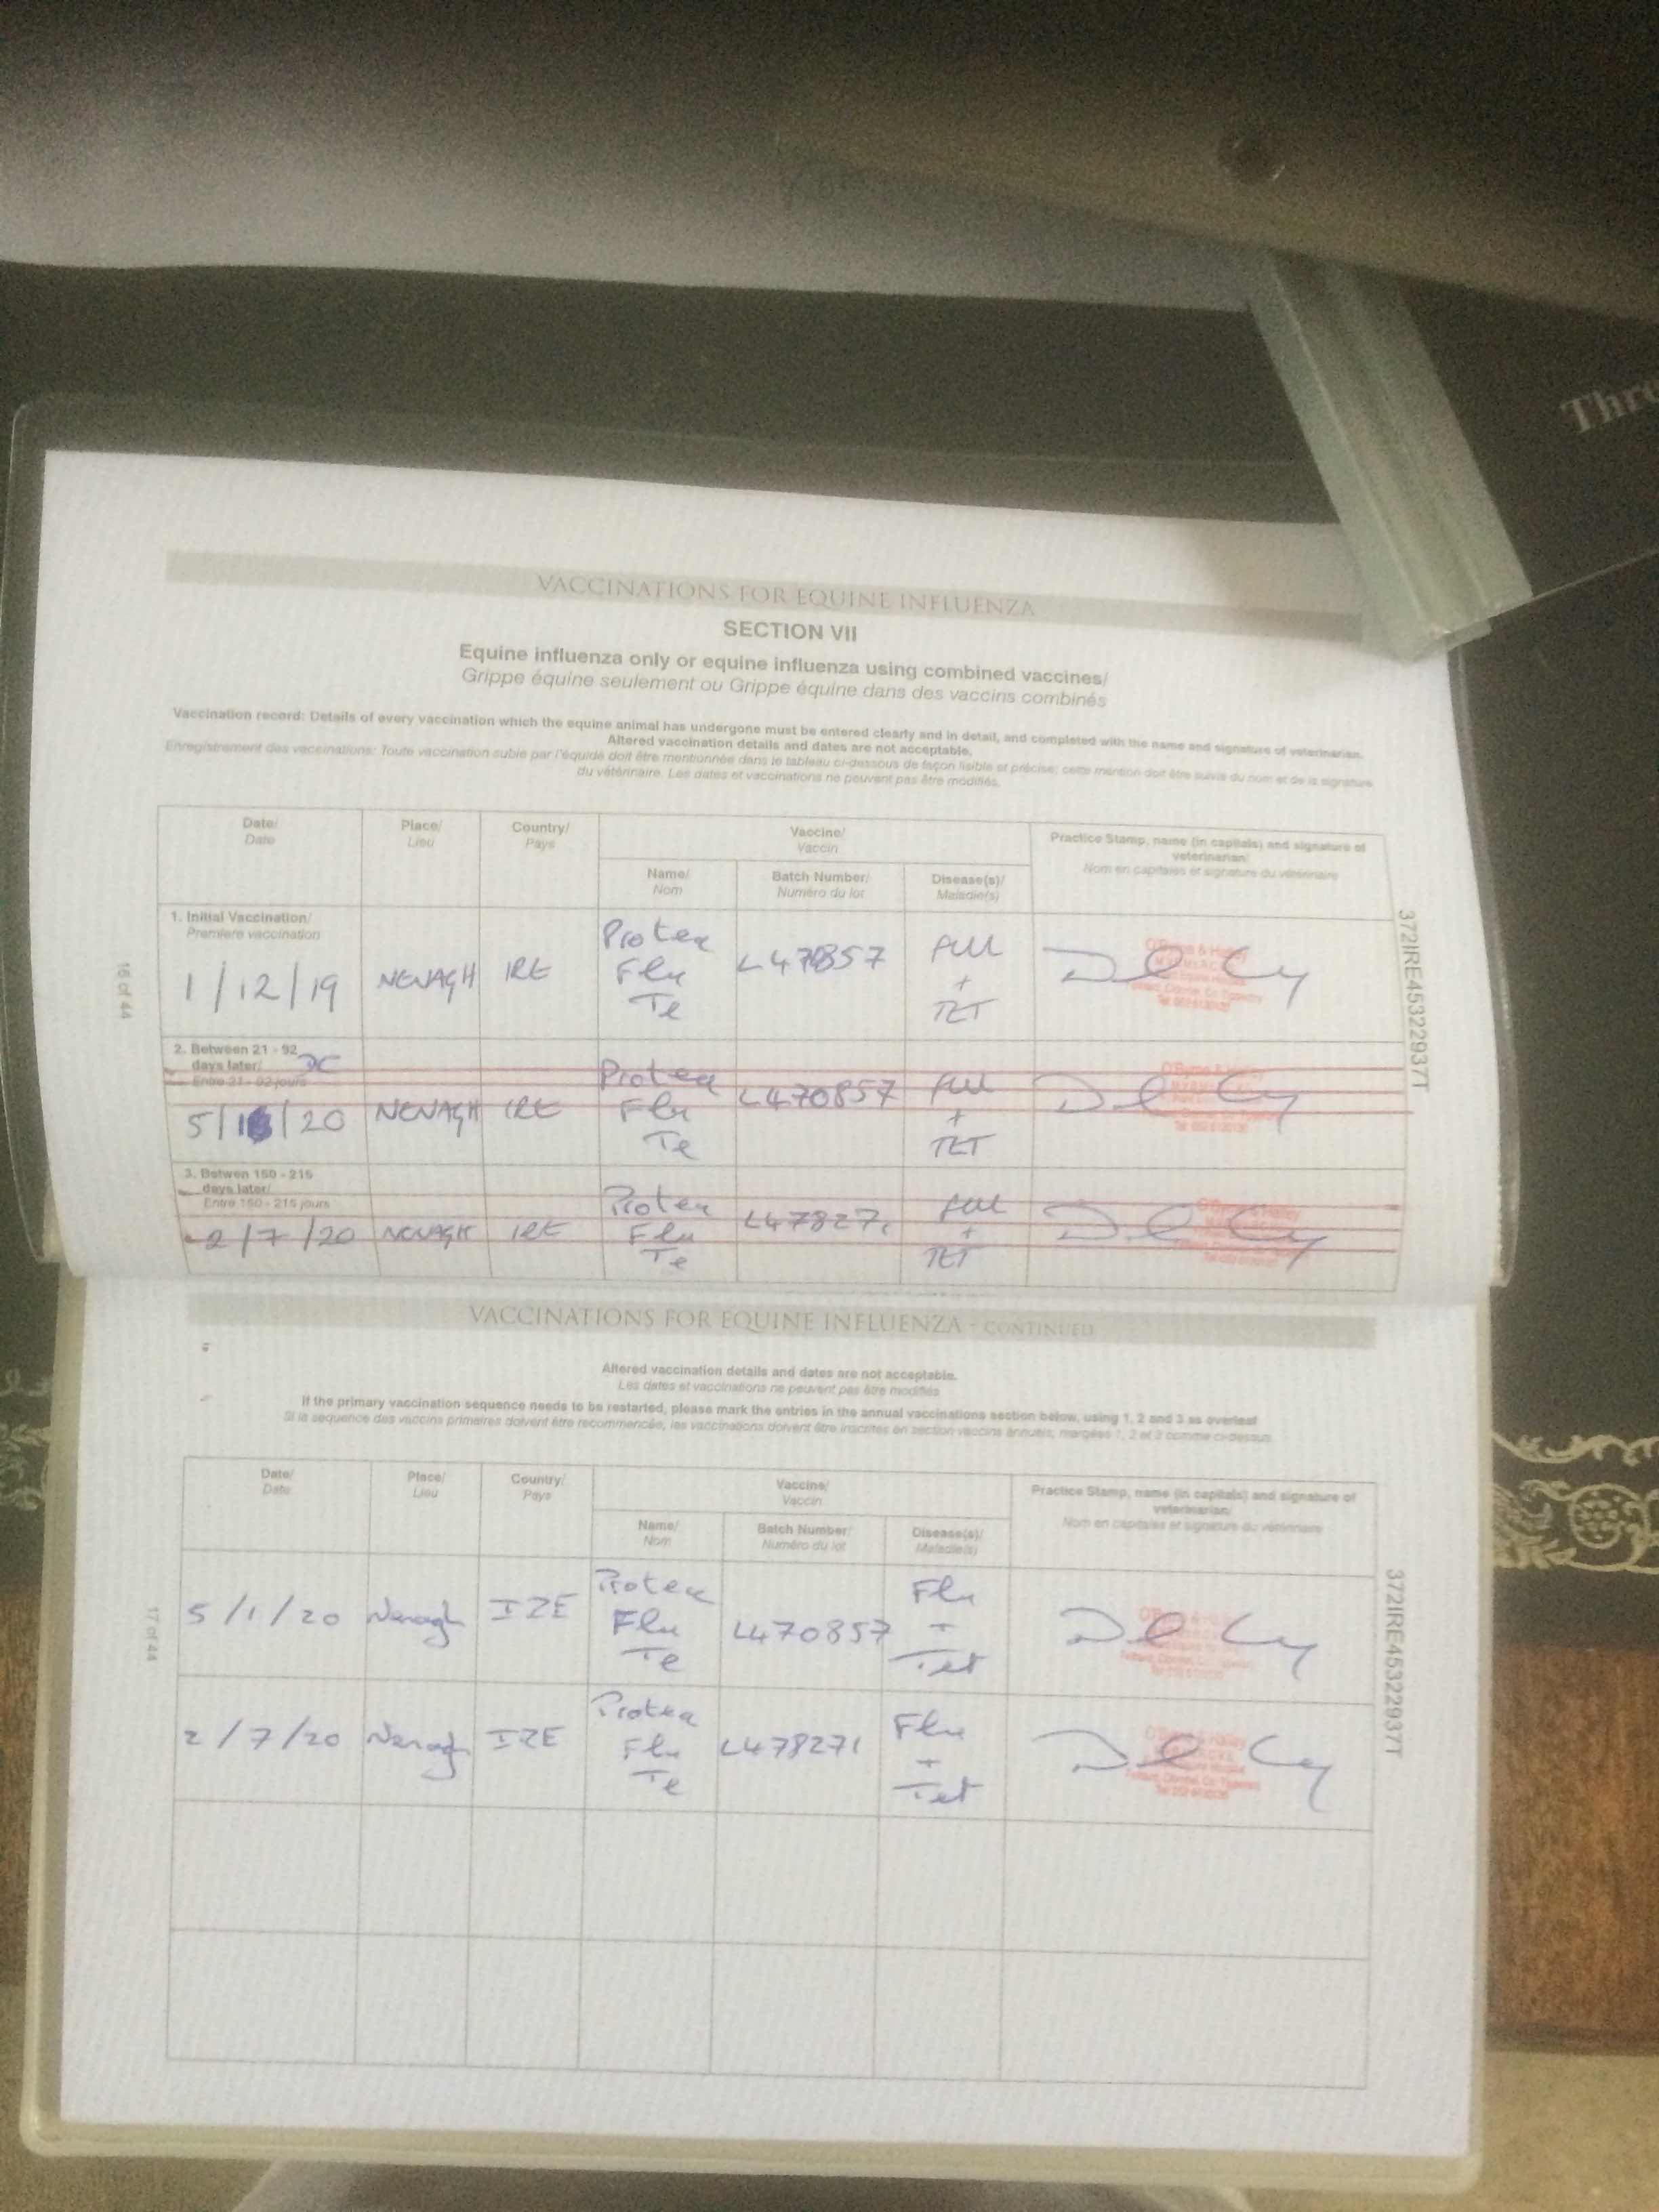 Thro
VACCINATIONS FOR EQUINE INFLUENZA
SECTION VII
Equine influenza only or equine influenza using combined vaccines/
Grippe équine seulement ou Grippe équine dans des vaccins combinés
Vaccination record: Details of every vaccination which the equine animal has undergone must be entered clearly and in detail, and completed with the name and signature of veterinarian.
Altered vaccination details and dates are not acceptable.
Enregistrement des vaccinations: Toute vaccination subie par l'équidé doit être mentionnée dans le tableau ci-dessous de façon lisible et précise; cette mention doit être suivie du nom et de la signature
du vétérinaire. Les dates et vaccinations ne peuvent pas être modifiés.
Date/ Place/ Country/ Vaccine/ Practice Stamp, name (in capitals) and signature of
Date Lieu Pays Vaccin veterinarian/
Name/ Batch Number/ Disease(s)/ Nom en capitales et signature du vétérinaire
Nom Numéro du lot Maladie(s)
1. Initial Vaccination/
Premiere vaccination
1/12/19 NENAGH IRE Proteq Flu Te FLU + TET
2. Between 21 - 92
days later/
Entre 21 - 92 jours
NENAGH IRE Proteq Flu Te L470857 FLU + TET
3. Betwen 150 - 215
days later/
Entre 150 - 215 jours
2/7/20 NENAGH IRE Proteq Flu Te L47827 FLU + TET
16 of 44
372IRE45322937T
VACCINATIONS FOR EQUINE INFLUENZA - CONTINUED
Altered vaccination details and dates are not acceptable.
Les dates et vaccinations ne peuvent pas être modifiés
If the primary vaccination sequence needs to be restarted, please mark the entries in the annual vaccinations section below, using 1, 2 and 3 as overleaf
Si la sequence des vaccins primeires doivent être recommencée, les vaccinations doivent être inscrites en section vaccins annuels, marqées 1, 2 et 3 comme ci-dessus
Date/ Place/ Country/ Vaccine/ Practice Stamp, name (in capitals) and signature of
Date Lieu Pays Vaccin veterinarian/
Name/ Batch Number/ Disease(s)/ Nom en capitales et signature du vétérinaire
Nom Numéro du lot Maladie(s)
5/1/20 Nenagh IRE Proteq Flu Te L470857 Flu + Tet
2/7/20 Nenagh IRE Proteq Flu Te L478271 Flu + Tet
17 of 44
372IRE45322937T